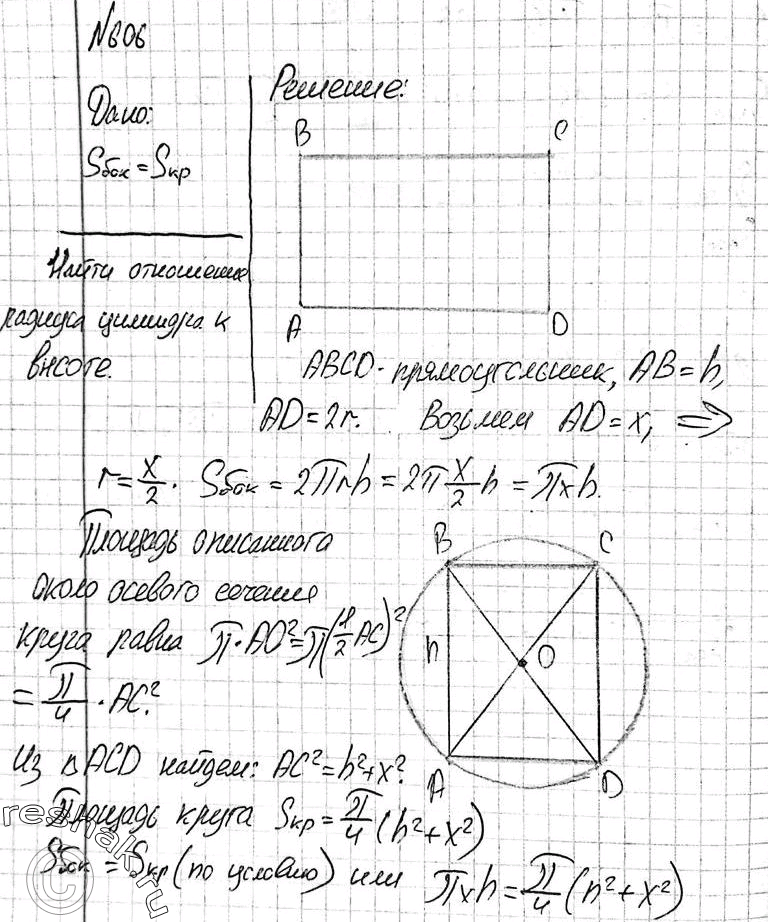 №606
Дано:
Sбок = Sкр
Найти отношение
радиуса цилиндра к
высоте.
Решение:
B C
A D
ABCD - прямоугольник, AB = h,
AD = 2r. Возьмем AD = x, ⇒
r = x/2. Sбок = 2πrh = 2π x/2 h = πxh.
Площадь описанного
около осевого сечения
круга равна π·AO² = π(1/2 AC)²
= π/4 · AC².
B C
h
O
A D
Из △ACD найдем: AC² = h² + x².
Площадь круга Sкр = π/4 (h² + x²)
Sбок = Sкр (по условию) или πxh = π/4 (h² + x²)
©reshak.ru